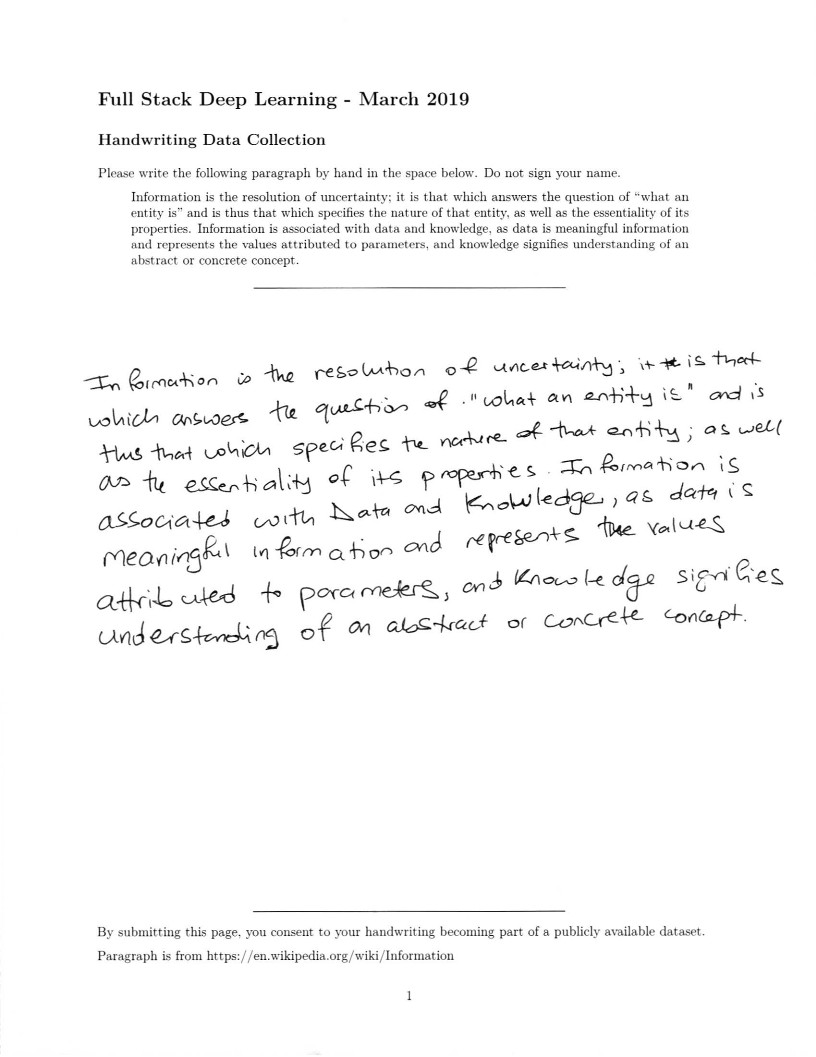 Full Stack Deep Learning - March 2019
Handwriting Data Collection
Please write the following paragraph by hand in the space below. Do not sign your name.
Information is the resolution of uncertainty; it is that which answers the question of “what an
entity is” and is thus that which specifies the nature of that entity, as well as the essentiality of its
properties. Information is associated with data and knowledge, as data is meaningful information
and represents the values attributed to parameters, and knowledge signifies understanding of an
abstract or concrete concept.
Information is the resolution of uncertainty; it is that
which answers the question of "what an entity is" and is
thus that which specifies the nature of that entity; as well
as the essentiality of its properties. Information is
associated with Data and Knowledge, as data is
meaningful information and represents the values
attributed to parameters, and knowledge signifies
understanding of an abstract or concrete concept.
By submitting this page, you consent to your handwriting becoming part of a publicly available dataset.
Paragraph is from https://en.wikipedia.org/wiki/Information
1